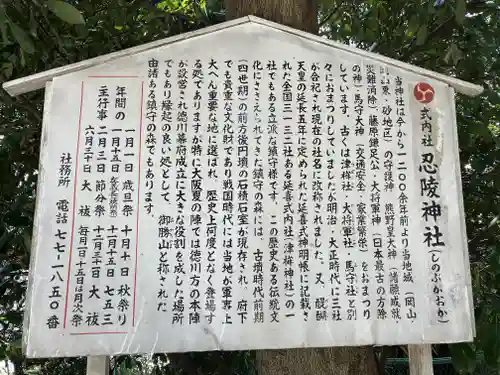 式内社 忍陵神社(しのぶがおか)
当神社は今から一二〇〇余年前より当地域(岡山・
砂・砂地区)の守護神 熊野皇大神(諸願成就・
災難消除)藤原鎌足公・大将軍神(日本最古の方除
の神)馬守大神(交通安全・家業繁栄)をおまつり
しています。古くは津桙社・大将軍社・馬守社と別
々におまつりしていましたが明治・大正時代に三社
が合祀され現在の社名に改称されました。又、醍醐
天皇の延長五年に定められた延喜式神明帳に記載さ
れた全国三一三二社ある延喜式内社(津桙神社)の一
社でもある立派な鎮守様です。この歴史ある伝説文
化にささえられてきた鎮守の森には、古墳時代前期
(四世期)の前方後円墳の石積室が現存され、府下
でも貴重な文化財であり戦国時代には当地が軍略上
大へん重要な地に選ばれ、歴史上何度となく登場す
る処でありますが特に大阪夏の陣では徳川方の本陣
が設営され徳川幕府成立に大きな役割を成した場所
でもあり、此の縁起の良い処として、御勝山と称された
由渚ある鎮守の森でもあります。
年間の主行事
一月一日 歳旦祭
一月十五日
二月三日 節分祭
六月三十日 大祓
十月十日 秋祭り
十一月十五日 七五三
十二月三十一日 大祓
毎月一日十五日は月次祭
社務所 電話 七七ー一八五〇番